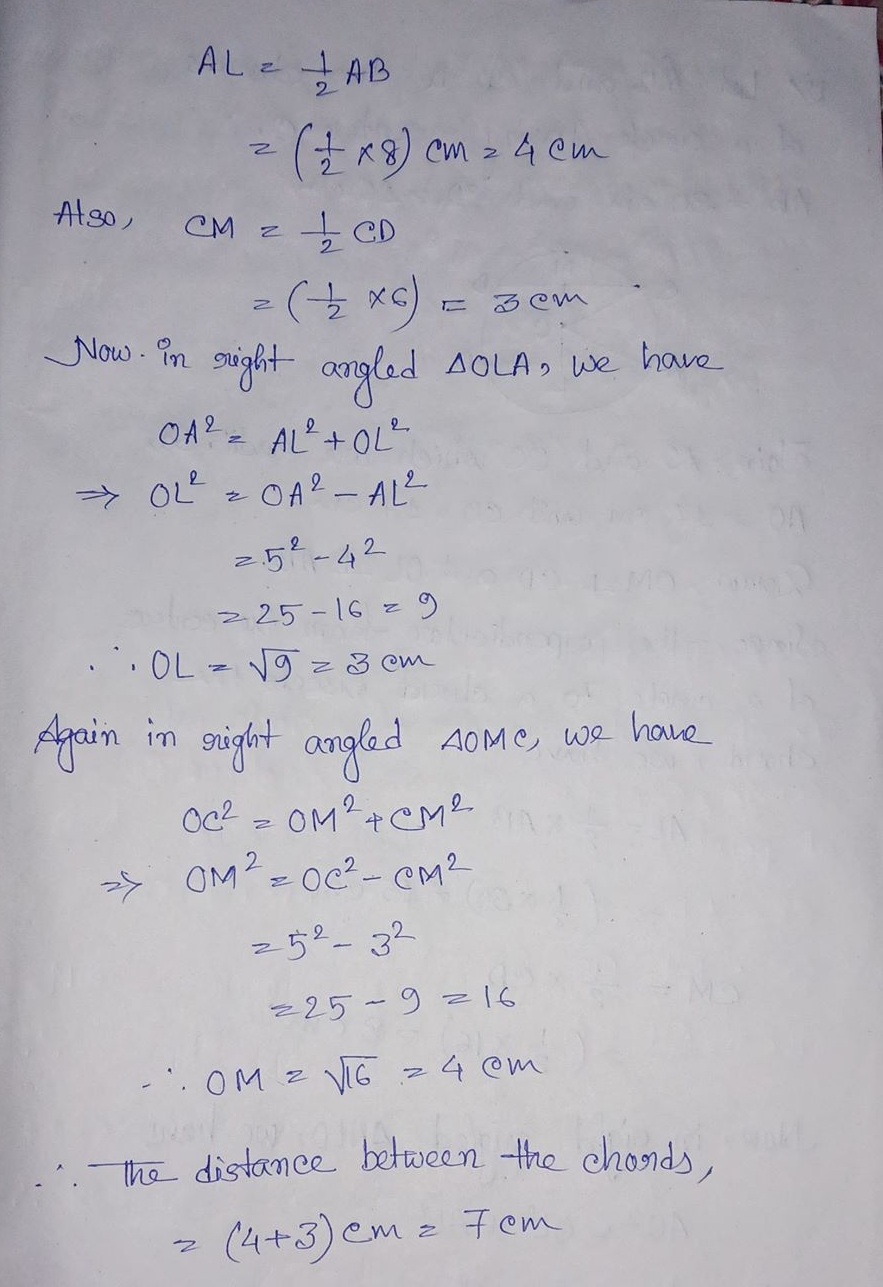 AL = 1/2 AB
= (1/2 × 8) cm = 4 cm
Also, CM = 1/2 CD
= (1/2 × 6) = 3 cm
Now. in right angled ΔOLA, we have
OA² = AL² + OL²
⇒ OL² = OA² − AL²
= 5² − 4²
= 25 − 16 = 9
∴ OL = √9 = 3 cm
Again in right angled ΔOMC, we have
OC² = OM² + CM²
⇒ OM² = OC² − CM²
= 5² − 3²
= 25 − 9 = 16
∴ OM = √16 = 4 cm
∴ The distance between the chords,
= (4+3) cm = 7 cm